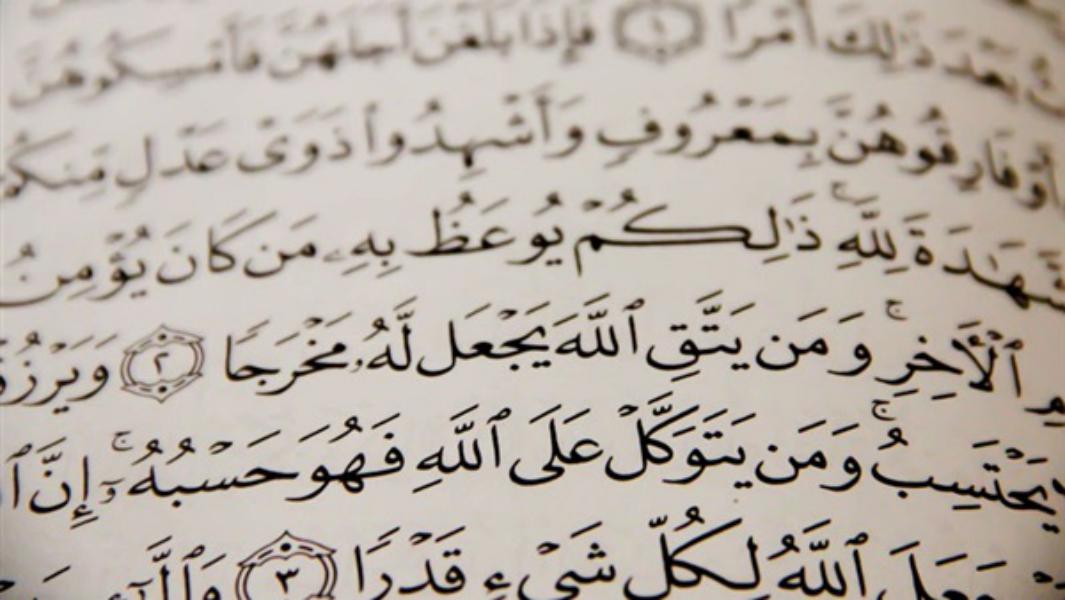 بَعْدَ ذَٰلِكَ أَمْرًا ١ فَإِذَا بَلَغْنَ أَجَلَهُنَّ فَأَمْسِكُوهُنَّ
أَوْ فَارِقُوهُنَّ بِمَعْرُوفٍ وَأَشْهِدُوا۟ ذَوَىْ عَدْلٍ مِّنكُمْ
ٱلشَّهَـٰدَةَ لِلَّهِ ۚ ذَٰلِكُمْ يُوعَظُ بِهِۦ مَن كَانَ يُؤْمِنُ
ٱلْـَٔاخِرِ ۚ وَمَن يَتَّقِ ٱللَّهَ يَجْعَل لَّهُۥ مَخْرَجًا ٢ وَيَرْزُقْ
يَحْتَسِبُ ۚ وَمَن يَتَوَكَّلْ عَلَى ٱللَّهِ فَهُوَ حَسْبُهُۥٓ ۚ إِنَّ
جَعَلَ ٱللَّهُ لِكُلِّ شَىْءٍ قَدْرًا ٣ وَٱلَّـٰٓـِٔى